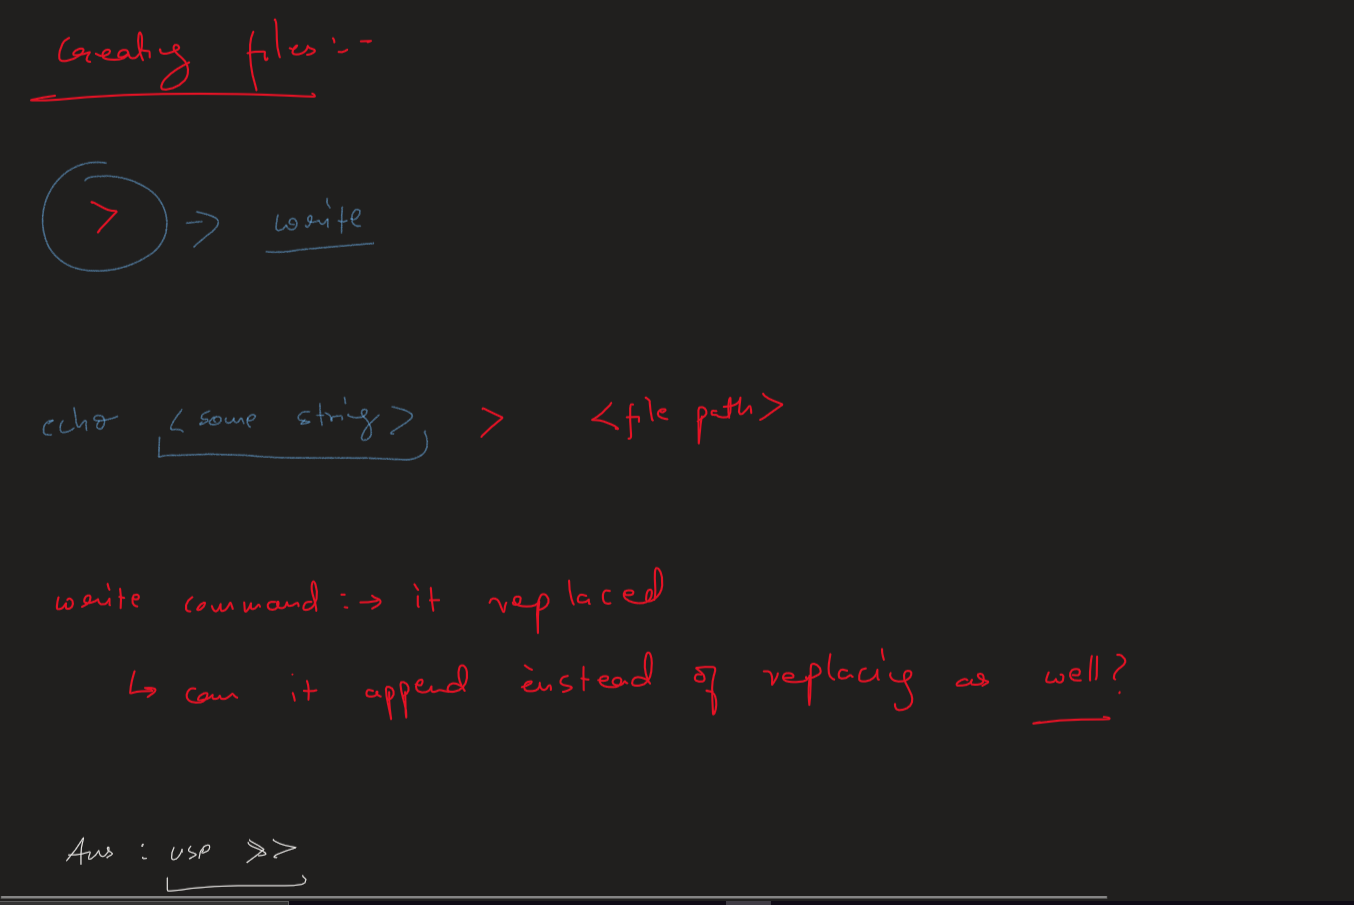 Creating files :-
> → write
echo <some string> > <file path>
write command :→ it replaced
↳ can it append instead of replacing as well?
Ans : use >>